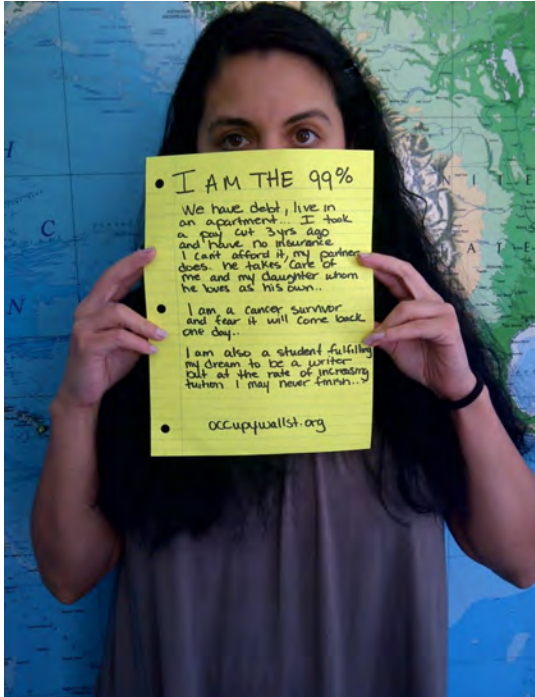 I AM THE 99%
We have debt, live in
an apartment... I took
a pay cut 3yrs ago
and have no insurance
I can't afford it, my partner
does. he takes care of
me and my daughter whom
he loves as his own..
I am a cancer survivor
and fear it will come back
one day..
I am also a student fulfilling
my dream to be a writer
but at the rate of increasing
tuition I may never finish...
occupywallst.org
H
C
N
N I T E
A T E